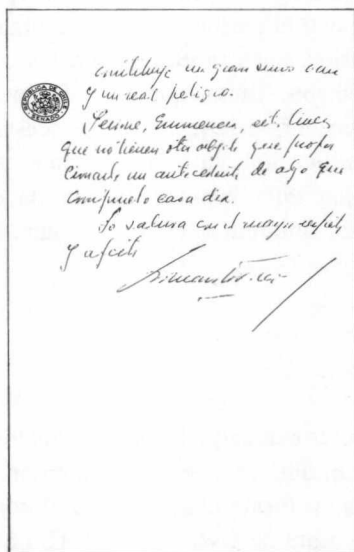 REPUBLICA DE CHILE
SENADO
constituye un gran
y un real peligro.
Perdone, Eminencia, est. líneas
que no tienen otro objeto que propor
cionarle un antecedente de algo que
compruebo cada día.
Lo saluda con el mayor respeto
y afecto